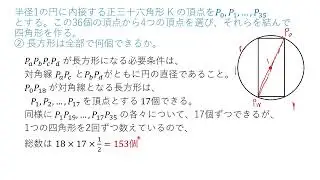 半径1の円に内接する正三十六角形 K の頂点をP₀, P₁, …, P₃₅
とする。この36個の頂点から4つの頂点を選び、それらを結んで
四角形を作る。
② 長方形は全部で何個できるか。
PₐP_bP_cP_d が長方形になる必要条件は、
対角線 PₐP_c とP_bP_dがともに円の直径であること。
P₀P₁₈ が対角線となる長方形は、
P₁, P₂, …, P₁₇ を頂点とする 17個できる。
同様に P₁P₁₉, …, P₁₇P₃₅ の各々について、17個ずつできるが、
1つの四角形を2回ずつ数えているので、
総数は 18 × 17 × 1/2 = 153個
P₀
1
P₁₈